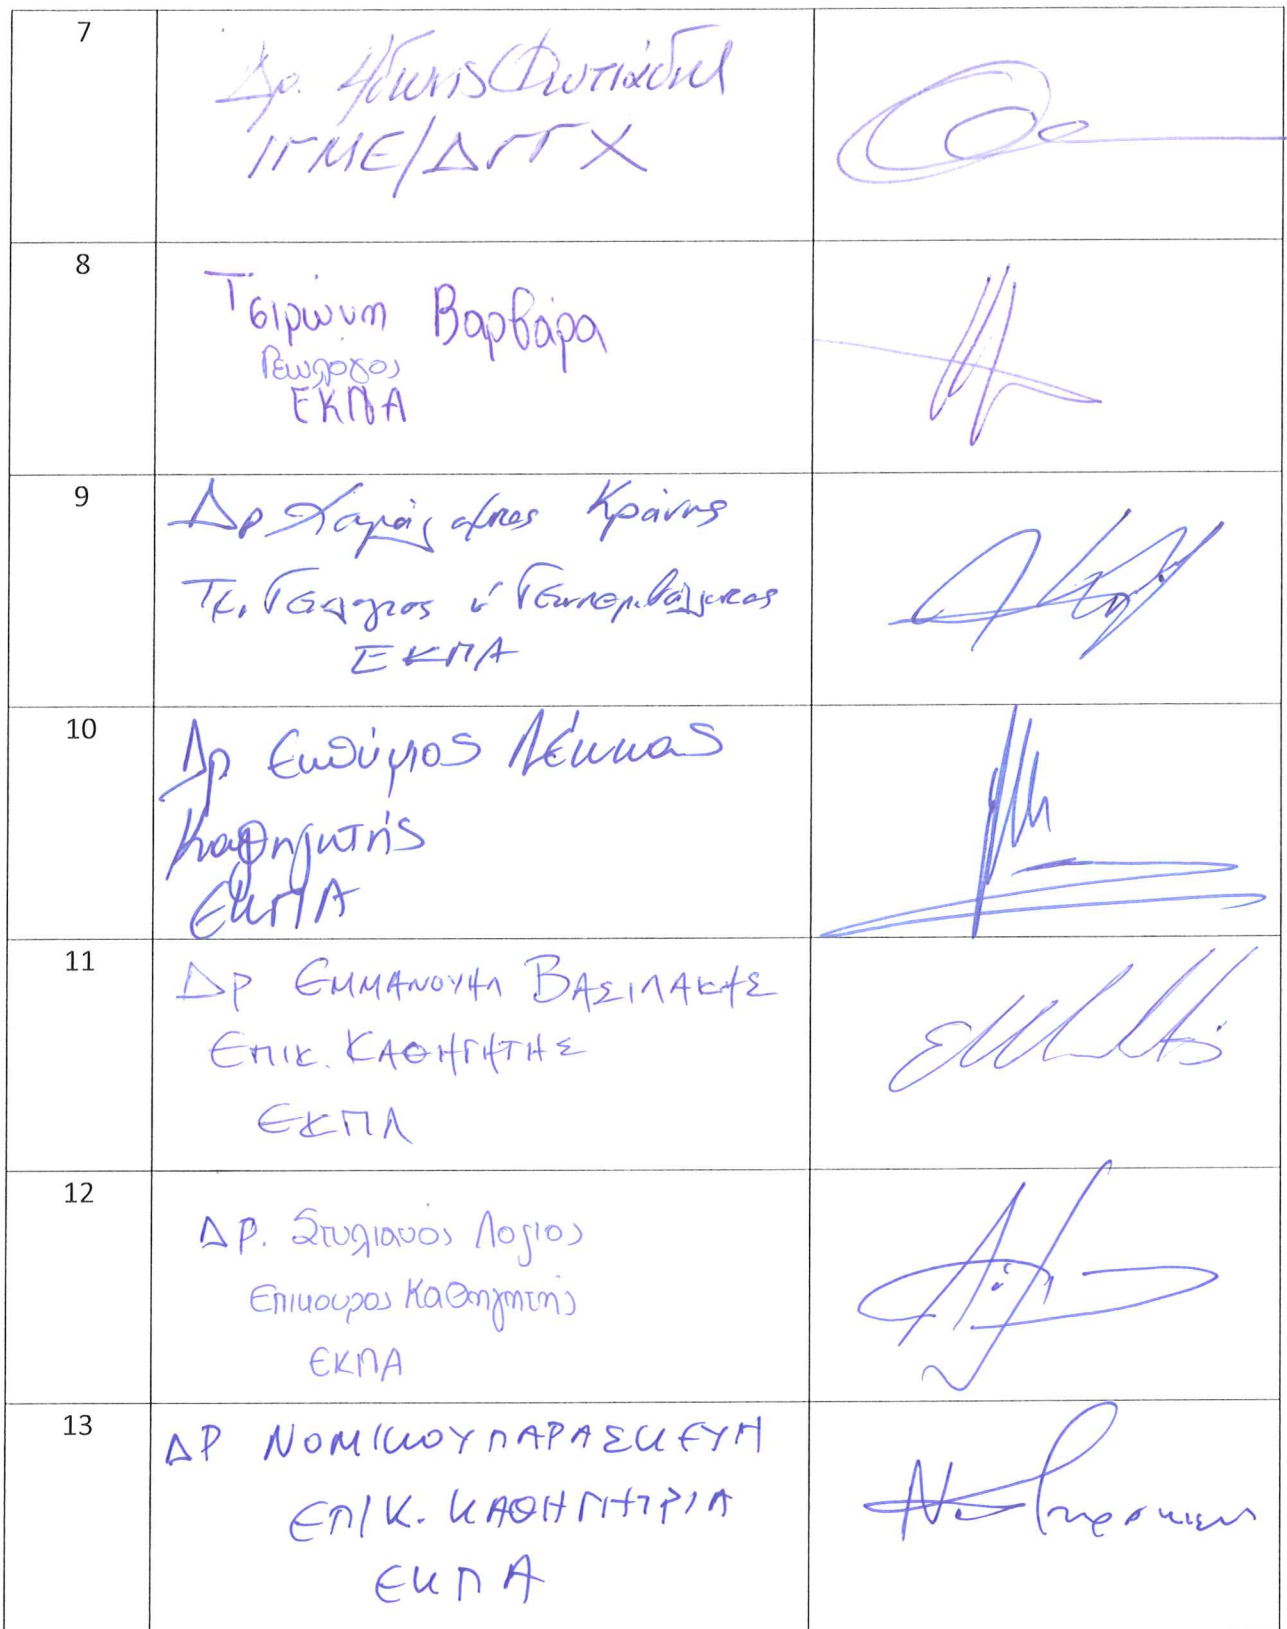 7
Δρ. Άδωνις Φωτιάδης
ΙΓΜΕ/ΔΓΓΧ
8
Τσιρώνη Βαρβάρα
Γεωλόγος
ΕΚΠΑ
9
Δρ Χαράλαμπος Κράνης
Τμ. Γεωλογίας & Γεωπεριβάλλοντος
ΕΚΠΑ
10
Δρ Ευθύμιος Λέκκας
Καθηγητής
ΕΚΠΑ
11
ΔΡ ΕΜΜΑΝΟΥΗΛ ΒΑΣΙΛΑΚΗΣ
ΕΠΙΚ. ΚΑΘΗΓΗΤΗΣ
ΕΚΠΑ
12
ΔΡ. Στυλιανός Λόζιος
Επίκουρος Καθηγητής
ΕΚΠΑ
13
ΔΡ ΝΟΜΙΚΟΥ ΠΑΡΑΣΚΕΥΗ
ΕΠΙΚ. ΚΑΘΗΓΗΤΡΙΑ
ΕΚΠΑ